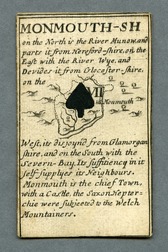 MONMOUTH-SH
on the North is the River Munow, and
parts it from Hereford-shire, on the
East with the River Wye, and
Devides it from Glocester-shire.
on the
VII
Monmouth
West, its disjoynd from Glamorgan
shire, and on the South with the
Severn-Bay. Its sufficiency in it
self supplyes its Neighbours.
Monmouth is the chief Town,
with a Castle, the Saxon Hepter-
chie were subjected to the Welch
Mountainers.